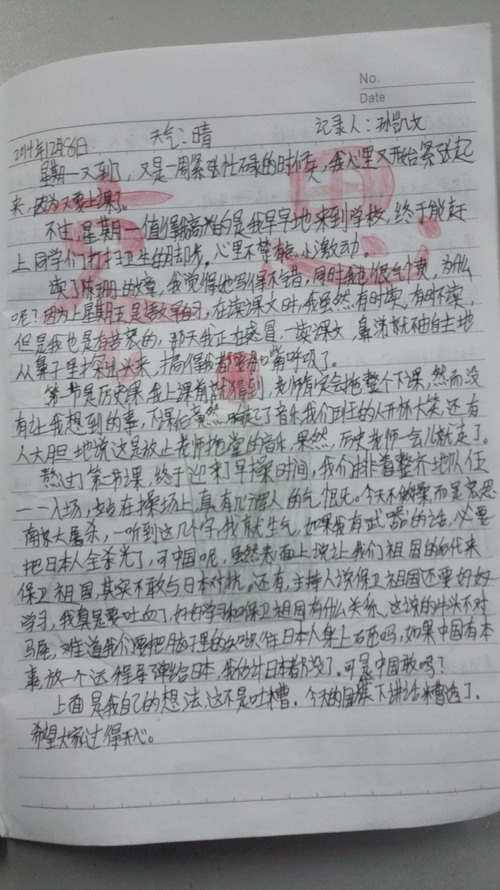 No.
Date
2014年12月8日 天气:晴 记录人:孙凯文
星期一又到了,又是一周紧张忙碌的时候,我心里又开始紧张起
来,因为又要上课了。
不过,星期一值得我高兴的是我早早地来到学校,终于能赶
上同学们打扫卫生的脚步。心里不禁有点小激动。
读了陈珊的文章,我觉得她写得不错,同时我也很自责,为什么
呢?因为上星期五是语文早自习,在读课文时,我虽然有时读,有时不读,
但是我也是有苦衷的,那天我正在感冒,一读课文,鼻涕就不由自主地
从鼻子里探出头来,搞得我都要用嘴呼吸了。
第一节是历史课,我上课前就猜到,老师肯定会拖整个下课,然而没
有让我想到的事,下课后竟然响起了音乐,我们班的人开怀大笑,还有
人大胆地说这是放止老师拖堂的音乐,果然,历史老师一会儿就走了。
熬过了第一节课,终于迎来了早操时间,我们排着整齐地队伍
一一入场,站在操场上真有几万雄人的气很头。今天不做操而是哀思
南京大屠杀,一听到这几个字,我就生气,如果我有武器的话,必要
把日本人全杀光了,可中国呢,虽然表面上说让我们祖国的后代来
保卫祖国,其实不敢与日本对抗。还有,主持人说保卫祖国还要好好
学习,我真是要吐血了,好好学习和保卫祖国有什么关系,这说的牛头不对
马尾,难道我们要把脑子里的知识往日本人身上砸吗,如果中国有本
事放一个远程导弹给日本,我估计日本都没了。可是中国敢吗?
上面是我自己的想法,这不是吐槽。今天的国旗下讲话糟透了。
希望大家过得开心。